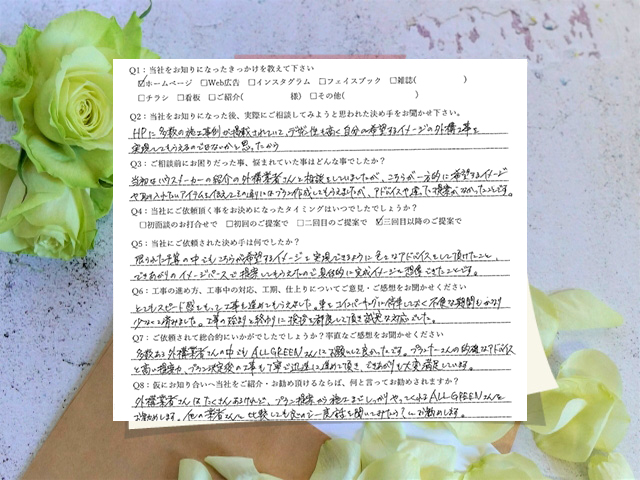 Q1：当社をお知りになったきっかけを教えて下さい
☑ホームページ □Web広告 □インスタグラム □フェイスブック □雑誌( )
□チラシ □看板 □ご紹介( 様) □その他( )
Q2：当社をお知りになった後、実際にご相談してみようと思われた決め手をお聞かせ下さい。
HPに多数の施工事例が掲載されていて、デザイン性も高く自分の希望するイメージの外構工事を
実現してもらえるのではないかと思ったから
Q3：ご相談前にお困りだった事、悩まれていた事はどんな事でしたか？
当初はハウスメーカーの紹介の外構業者さんと相談をしていましたが、こちらが一方的に希望するイメージ
や取り入れたいアイテムを伝えてその通りにはプラン作成してもらえましたが、アドバイスや違った提案がなかったことです。
Q4：当社にご依頼頂く事をお決めになったタイミングはいつでしたでしょうか？
□初面談のお打合せで □初回のご提案で □二回目のご提案で ☑三回目以降のご提案で
Q5：当社にご依頼された決め手は何でしたか？
限られた予算の中でもこちらが希望するイメージを実現できるように色々なアドバイスをして頂けたこと、
できあがりのイメージパースで提案してもらえたので具体的に完成イメージを想像できたことです。
Q6：工事の進め方、工事中の対応、工期、仕上りについてご意見・ご感想をお聞かせください
とてもスピード感をもって工事を進めてもらえました。車をコインパーキングに停車しておく不便な期間もかなり
少なくて済みました。工事の始まりと終わりに挨拶も都度して頂き誠実な対応でした。
Q7：ご依頼されて総合的にいかがでしたでしょうか？率直なご感想をお聞かせください
多数ある外構業者さんの中でもALLGREENさんにお願いして良かったです。プランナーさんの的確なアドバイス
と高い提案力、プラン決定後の工事も丁寧で迅速に進めて頂き、できあがりも大変満足しています。
Q8：仮にお知り合いへ当社をご紹介・お勧め頂けるならば、何と言ってお勧めされますか？
外構業者さんはたくさんあるけれど、プラン提案から施工までしっかりやってくれるALLGREENさんを
お勧めします。他の業者さんと比較しても良いから一度話を聞いてみたら？とお勧めします。